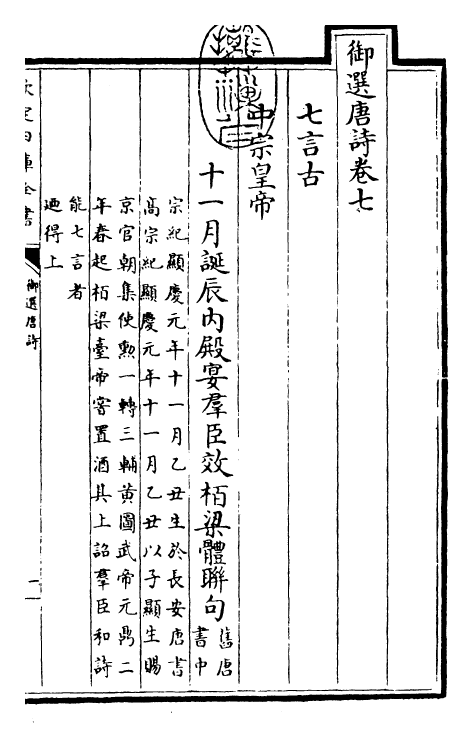 御選唐詩卷七
七言古
中宗皇帝
十一月誕辰內殿宴羣臣效栢梁體聯句舊唐書中
宗紀顯慶元年十一月乙丑生於長安唐書
高宗紀顯慶元年十一月乙丑以子顯生賜
京官朝集使勲一轉三輔黃圖武帝元鼎二
年春起栢梁臺帝甞置酒其上詔羣臣和詩
能七言者
廼得上
欽定四庫全書
御選唐詩
一